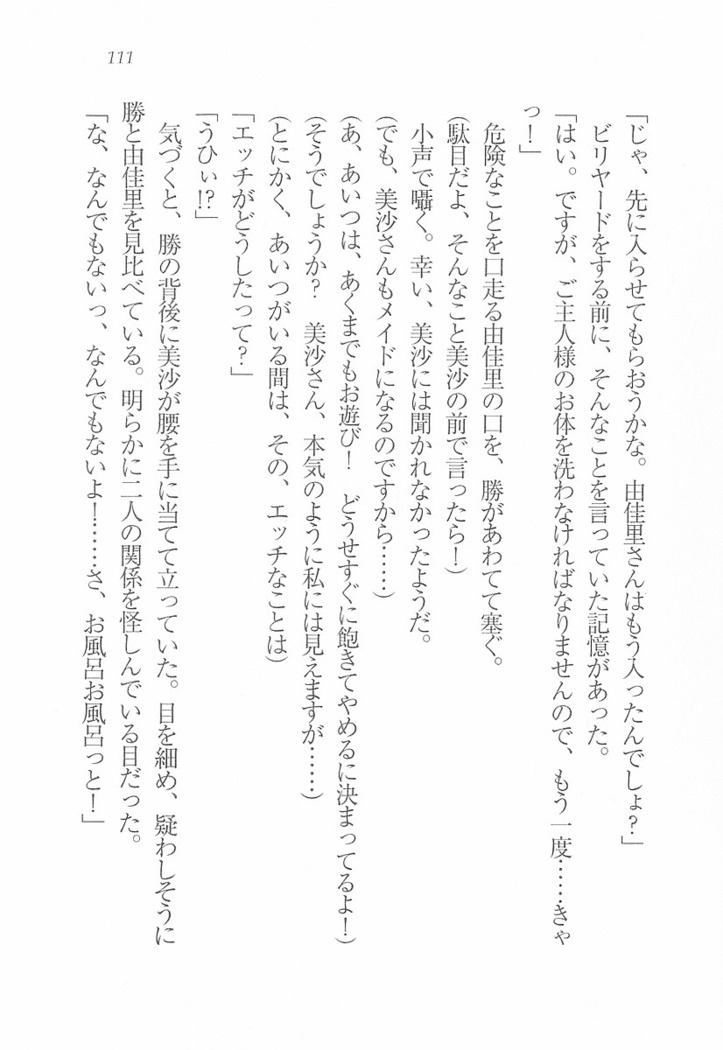 111
「じゃ、先に入らせてもらおうかな。由佳里さんはもう入ったんでしょ？」
　ビリヤードをする前に、そんなことを言っていた記憶があった。
「はい。ですが、ご主人様のお体を洗わなければなりませんので、もう一度……きゃ
っ！」
　危険なことを口走る由佳里の口を、勝があわてて塞ぐ。
（駄目だよ、そんなこと美沙の前で言ったら！）
　小声で囁く。幸い、美沙には聞かれなかったようだ。
（でも、美沙さんもメイドになるのですから……）
（あ、あいつは、あくまでもお遊び！　どうせすぐに飽きてやめるに決まってるよ！）
（そうでしょうか？　美沙さん、本気のように私には見えますが……）
（とにかく、あいつがいる間は、その、エッチなことは）
「エッチがどうしたって？」
「うひぃ!?」
　気づくと、勝の背後に美沙が腰を手に当てて立っていた。目を細め、疑わしそうに
勝と由佳里を見比べている。明らかに二人の関係を怪しんでいる目だった。
「な、なんでもないっ、なんでもないよ！……さ、お風呂お風呂っと！」